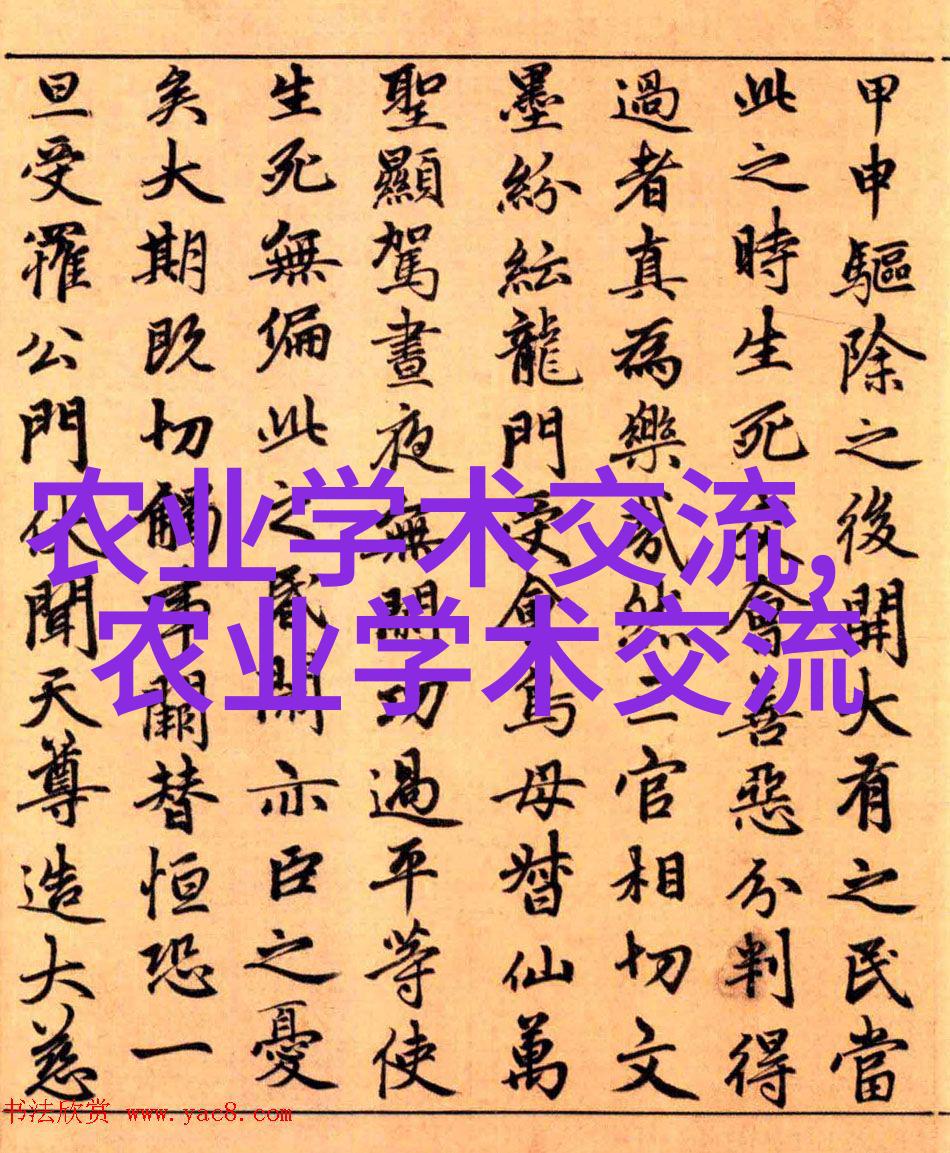 甲申驅除之後開大有之民當
此之時生死衣會善惡分判得
過者真為樂哉然二官相切文
墨紛紜龍門受會鳥母督仙萬
聖顯駕晝夜無閑功過平等使
生死無偏此之昏閙亦臣之憂
矣大期既切觸事闕替恒恐一
旦受罹公門伏聞天尊造大慈
农业学术交流,
农业学术交流
书法欣赏 www.yac8.com